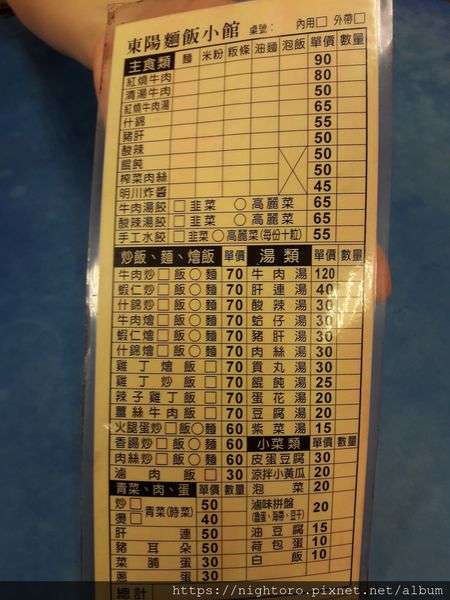 東陽麵飯小館 桌號： 內用□ 外帶□
主食類 麵 米粉 粄條 油麵 泡飯 單價 數量
紅燒牛肉 90
清湯牛肉 80
紅燒牛肉湯 50
什錦 65
豬肝 55
酸辣 50
餛飩 50
榨菜肉絲 50
明川炸醬 45
牛肉湯餃 □韭菜 ○高麗菜 65
酸辣湯餃 □韭菜 ○高麗菜 65
手工水餃 □韭菜 ○高麗菜(每份十粒) 55
炒飯、麵、燴飯 單價
牛肉炒□飯○麵 70
蝦仁炒□飯○麵 70
什錦炒□飯○麵 70
牛肉燴□飯○麵 70
蝦仁燴□飯○麵 70
什錦燴□飯○麵 70
雞丁燴飯□ 70
雞丁炒飯□ 70
辣子雞丁飯□ 70
薑絲牛肉飯□ 70
火腿蛋炒□飯○麵 60
香腸炒□飯○麵 60
肉絲炒□飯○麵 60
滷肉飯□ 30
青菜、肉、蛋 單價 數量
炒□ 50
燙□ 40
青菜(時菜)
肝連 50
豬耳朵 50
菜脯蛋 30
蔥蛋 30
總計
湯類 單價 數量
牛肉湯 120
肝連湯 40
酸辣湯 30
蛤仔湯 30
豬肝湯 30
肉絲湯 30
貢丸湯 30
餛飩湯 25
蛋花湯 20
豆腐湯 20
紫菜湯 15
小菜類 單價 數量
皮蛋豆腐 30
涼拌小黃瓜 20
泡菜 20
滷味拼盤 20
(滷蛋、海帶、豆干)
油豆腐 15
荷包蛋 10
白飯 10
https://nightoro.pixnet.net/album